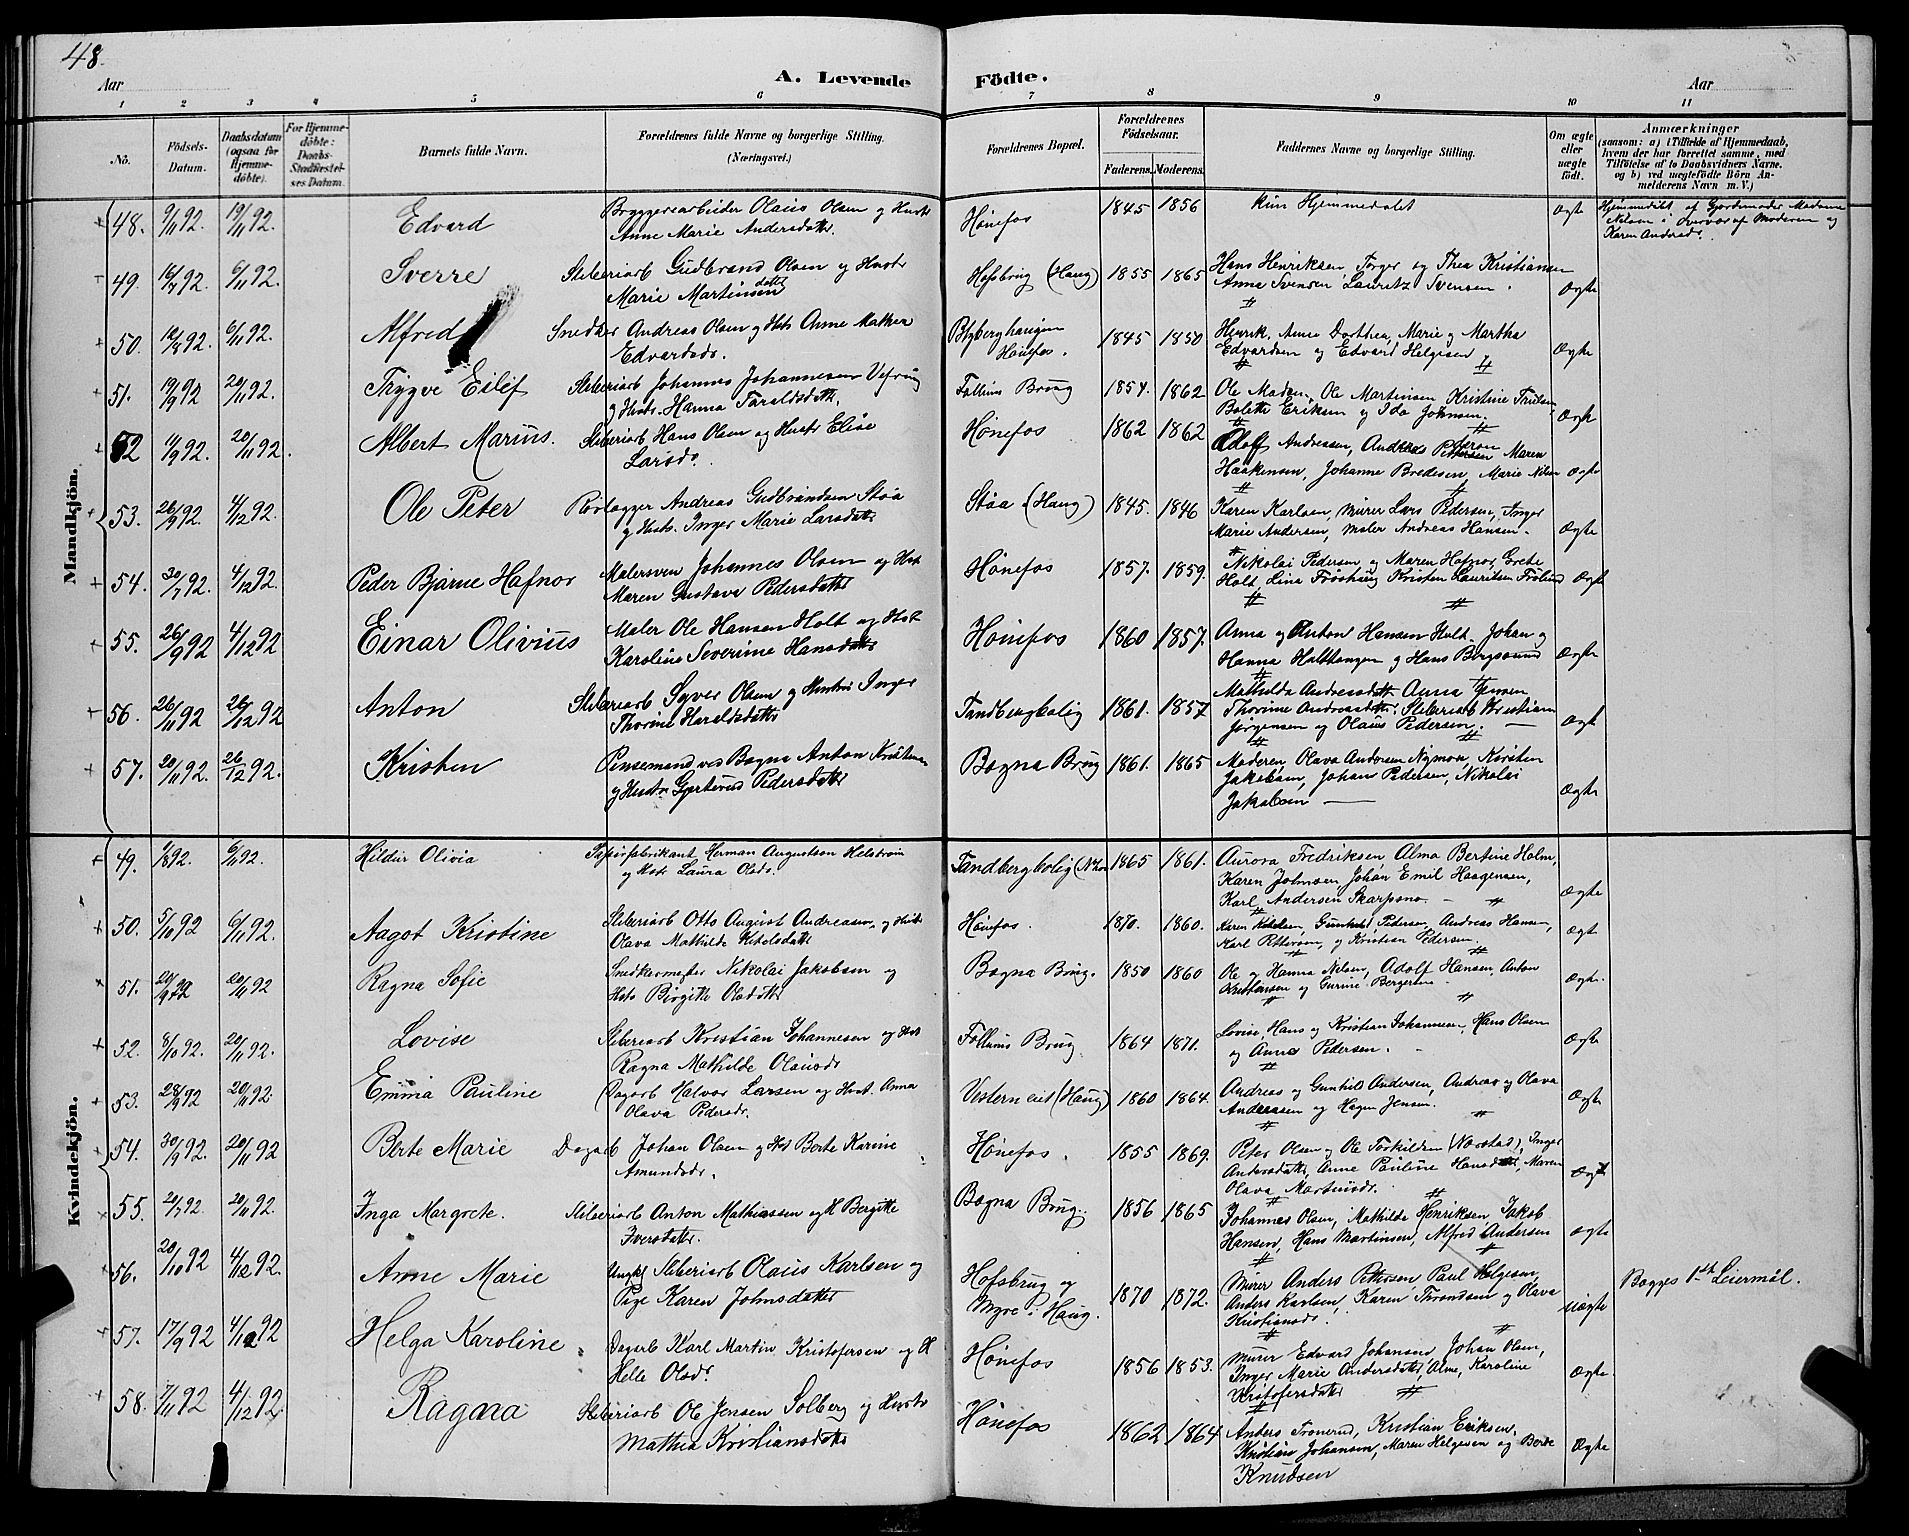 48.
Aar
A. Levende
Födte.
Aar
1 2 3 4 5 6 7 8 9 10 11
No.
Födsels-Datum.
Daabsdatum (ogsaa for Hjemme-döbte).
For Hjemme-döbte: Daabs-Stadfæstel-ses Datum.
Barnets fulde Navn.
Forældrenes fulde Navne og borgerlige Stilling. (Næringsvei.)
Forældrenes Bopæl.
Forældrenes Födselsaar.
Faderens. Moderens.
Faddernes Navne og borgerlige Stilling.
Om ægte eller uægte födt.
Anmærkninger
(saasom: a) i Tilfælde af Hjemmedaab,
hvem der har forrettet samme, med
Tilföielse af to Daabsvidners Navne.
og b) ved uægtefödte Börn An-
melderens Navn m. V.)
Mandkjön.
48. 9/11 92. 19/11 92. Edvard Bryggeriarbeider Olaus Olsen og Hustr Hønefos 1845 1856 kun Hjemmedøbt Ægte Hjemmedøbt af Gjordemoder Madame
Anne Marie Andersdatter. Nilsen i Overvær af Moderen og
Karen Andersdr.
49. 16/7 92. 6/11 92. Sverre Sliberiarb Gudbrand Olsen og Hustr Hofsbrug (Haug) 1855 1865 Hans Henriksen, Torger og Thea Kristiansen
Marie Martinsendatter Anna Svensen Lauritz Svensen. Ægte
50. 12/8 92. 6/11 92. Alfred Snedker Andreas Olsen og Hstr Anne Mathea Blyberghaugen 1845 1850 Henrik, Anne Dorthea, Marie og Martha
Edvardsdr. Hønefos. Edvardsen og Edvard Helgesen Ægte
51. 19/9 92 20/11 92. Trygve Eilef Sliberiarb Johannes Johannesen Follums Brug 1857. 1862 Ole Madsen, Ole Martinsen Kristine
og Hustr. Hanna Taraldsdatt. Bolette Eriksen og Ida Johnsen. Ægte
52 11/9 92. 20/11 92. Albert Marius. Sliberiarb Hans Olsen og Hustr Elise Hønefos 1862 1862 Adolf Andressen, Andreas Pettersen Maren
Larsdr. Haakensen, Johanne Bredesen, Marie Nilsen Ægte
53. 26/9 92. 4/12 92. Ole Peter Rørlægger Andreas Gudbrandsen Støa Støa (Haug) 1845. 1846 Karen Karlsen, Murer Lars Pedersen, Inger
og Hustr. Inger Marie Larsdatter Marie Andersen, Maler Andreas Hansen. Ægte
54. 30/7 92. 4/12 92. Peder Bjarne Hafnor Malersven Johannes Olsen og Hst Hønefos 1857. 1859. Nikolai Pedersen og Maren Hafnor, Grete
Maren Gustava Pedersdatter Holt, Lina Frøshaug Kristen Lauritsen Ægte
55. 26/9 92 4/12 92 Einar Olivius Maler Ole Hansen Holt og Hst Hønefos 1860 1857. Anna og Anton Hansen Holt. Johan og
Karoline Severine Hansdatter Hanna og Hans Bergsund Ægte
56. 26/11 92 26/12 92 Anton Sliberiarb Syver Olsen og Hustru Inger Tandbergbolig 1861. 1857 Mathilda Andreasdtr. Anna Jensen
Thorine Haraldsdatter Thorine Andreasdtr. Sliberiarb Kristian
Jørgensen og Olaus Pedersen. Ægte
57. 20/11 92. 26/12 92. Kristen Pensemand ved Bægna Anton Kristensen Bægna Brug 1861. 1865 Moderen, Olava Andersen Nymoen, Kirsten
og Hustr Gjertrud Pedersdatter Jakobsen, Johan Pedersen, Nikolai
Jakobsen Ægte
Kvindekjön.
49. 7/8 92. 6/11 92. Hildur Olivia Papirfabrikant Herman Augustson Helstrøm Tandbergbolig 1865 1861. Aurora Fredriksen, Alma Bertine Holm,
og Hstr Laura Olsdr. Karen Johnsen Johan Emil Haagensen,
Karl Andersen Skarpsno. Ægte
50. 5/10 92 6/11 92. Aagot Kristine Sliberiarb Otto August Andreasen og Hustr Hønefos. 1870. 1860. Karen Ketelsen, Gunhild Pedersen, Andreas Hansen,
Olava Mathilde Ketelsdatter Karl Pettersen, og Kristian Pedersen. Ægt
51. 24/9 92 20/11 92 Ragna Sofie Snedkermester Nikolai Jakobsen og Bægna Brug. 1850 1860 Ole og Hanna Nilsen, Adolf Hansen, Anton
Hstr Birgitte Olsdatter Kristensen og Gurine Bergersen Ægte.
52. 8/10 92. 20/11 92. Lovise Sliberiarb Kristian Johannesen og Hst Follums Brug 1864 1871. Lovise, Hans og Kristian Johannesen, Hans Olsen
Ragna Mathilde Olausdr og Anna Pedersen. Ægte
53. 28/9 92 20/11 92. Emma Pauline Dagarb Halvor Larsen og Hust. Anna Vestern eiet (Haug) 1860 1864. Andreas og Gunhild Andersen, Andreas og Olava
Olava Pedersdr. Andreasen og Hagen Jensen. Ægte
54. 30/9 92. 20/11 92 Berte Marie Dagarb Johan Olsen og Hst Berte Karine Hønefos. 1855 1869. Peter Olsen og Ole Torkildsen (Nærstad), Inger
Amundsdr. Andersdatter, Anne Pauline Hansdatter, Maren
Olava Martinsdr. Ægt
55. 20/7 92. 20/11 92. Inga Margrete. Sliberiarb Anton Mathiassen og H Bergitte Bægna Brug. 1856 1865 Johannes Olsen, Mathilde Henriksen Jakob
Iversdatter. Hansen, Hans Martinsen, Alfred Andersen Ægte
56. 20/10 92 4/12 92. Anne Marie Ungkl Sliberiarb Olaus Karlsen og Hofsbrug og 1870 1872. Murer Anders Pettersen Paul Helgesen, Bægges 1ste Leiermål.
Pige Karen Johnsdatter Myre i Haug. Anders Karlsen, Karen Throndsen og Olava
Kristiansdr. Uægte
57. 17/9 92 4/12 92 Helga Karoline Dagarb Karl Martin Kristofersen og H Hønefos 1856 1853. Murer Edvard Johansen, Johan Olsen,
Helle Olsdr. Inger Marie Andersdatter, Alme, Karoline
Kristofersdatter Ægte.
58. 7/11 92 4/12 92. Ragna Sliberiarb Ole Jensen Solberg og Hustr Hønefos 1862 1864 Anders Tronerud, Kristian Eriksen,
Mathea Kristiansdatter Kristian Johansen, Maren Helgesen og Berte
Knudsen Ægte